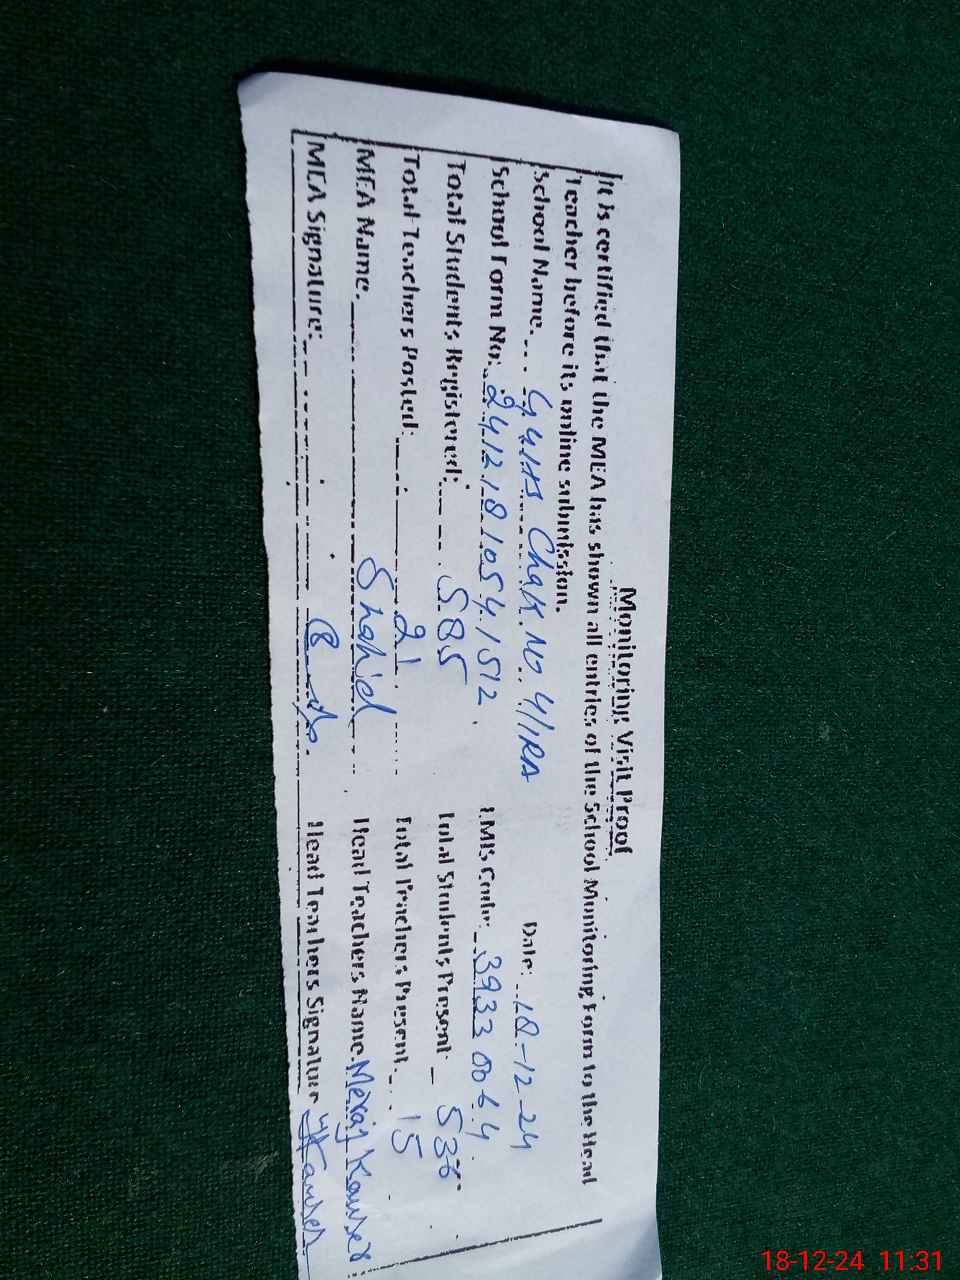 Monitoring Visit Proof
It is certified that the MEA has shown all entries of the School Monitoring Form to the Head
Teacher before its online submission.
School Name. GGHS Chak No 4/1RA Date: 18-12-24
School Form No: 24121810541512 EMIS Code: 39330064
Total Students Registered: 585 Total Students Present: 536
Total Teachers Posted: 21 Total Teachers Present. 15
MEA Name. Shahid Head Teachers Name. Meraj Kawser
MEA Signature: Head Teachers Signature
18-12-24 11:31